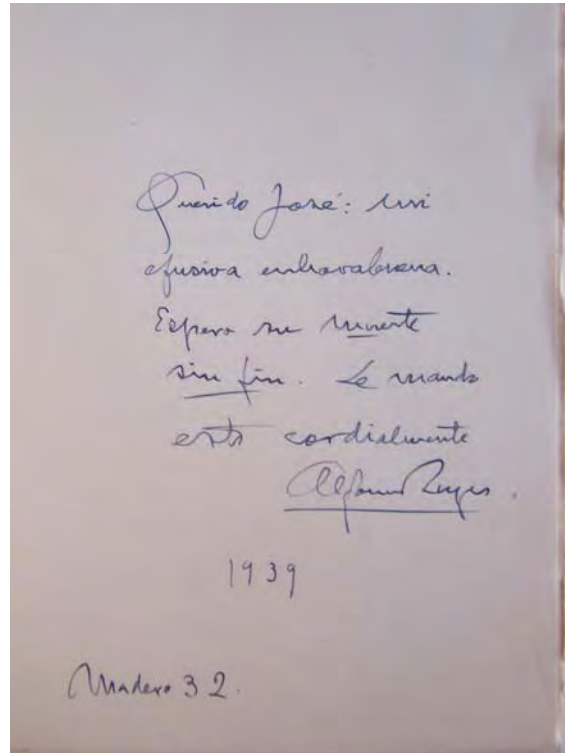 Querido José: mi
efusiva enhorabuena.
Espero su Muerte
sin fin. Le mando
esto cordialmente
Alfonso Reyes.
1939
Madero 32.